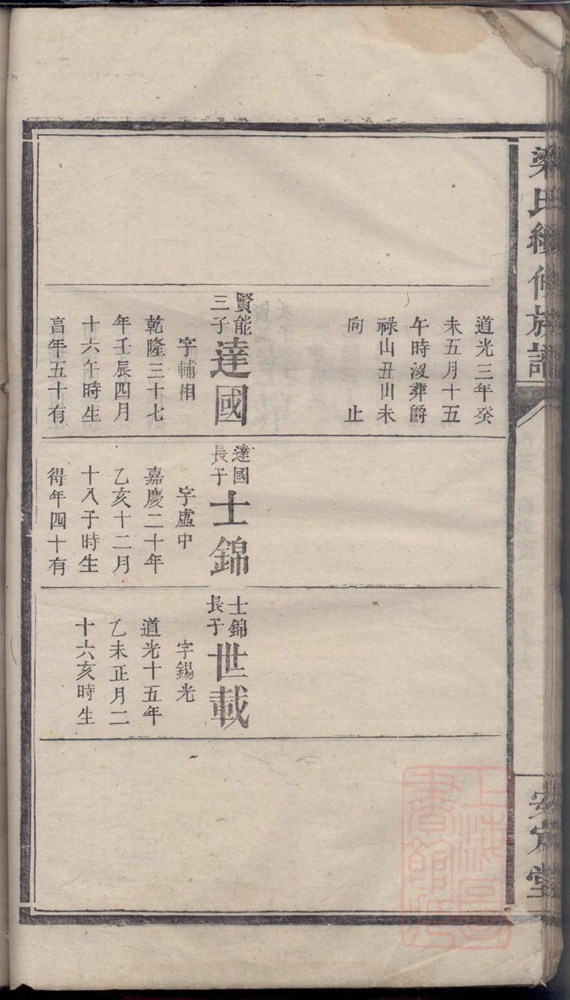 梁氏續修族譜
安定堂
道光三年癸
未五月十五
午時沒葬爵
祿山丑山未
向止
賢能
三子
達國
字輔相
乾隆三十七
年壬辰四月
十六午時生
享年五十有
達國
長子
士錦
字盧中
嘉慶二十年
乙亥十二月
十八子時生
得年四十有
士錦
長子
世載
字錫光
道光十五年
乙未正月二
十六亥時生
上海圖
書館藏